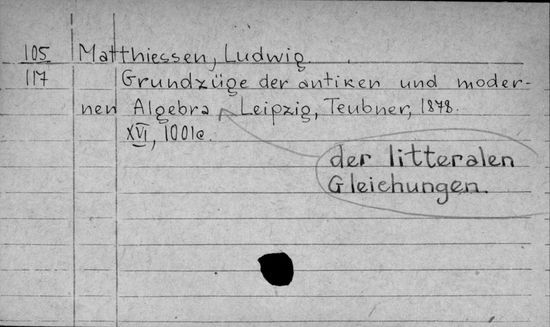 105 Matthiessen, Ludwig.
117 Grundzüge der antiken und moder-
nen Algebra Leipzig, Teubner, 1878.
XVI, 1001 e.
der litteralen
Gleichungen.